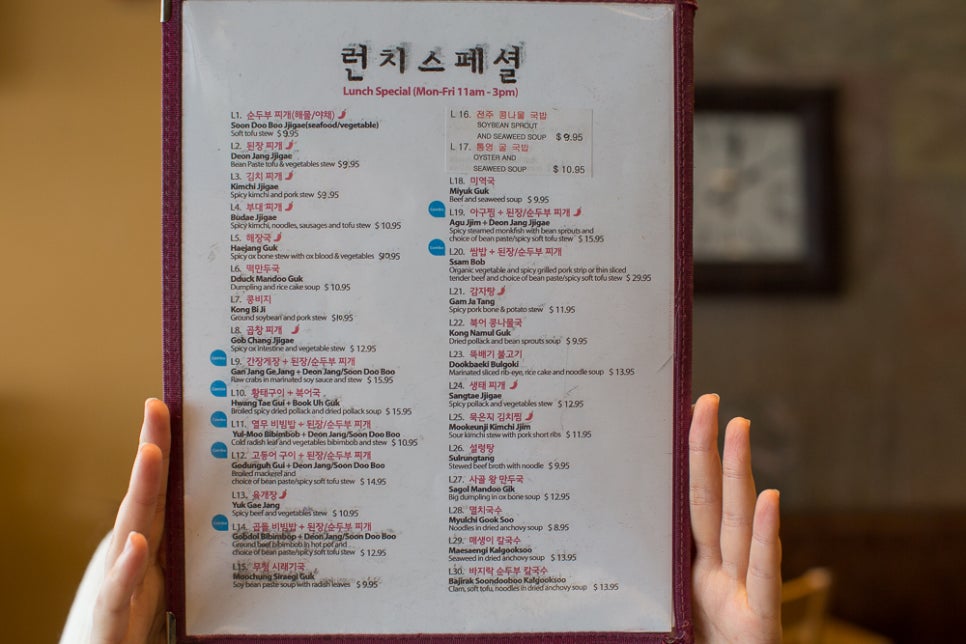 런치스페셜
Lunch Special (Mon-Fri 11am - 3pm)
L1. 순두부 찌개(해물/야채)
Soon Doo Boo Jjigae(seafood/vegetable)
Soft tofu stew $9.95
L2. 된장 찌개
Deon Jang Jjigae
Bean Paste tofu & vegetables stew $9.95
L3. 김치 찌개
Kimchi Jjigae
Spicy kimchi and pork stew $9.95
L4. 부대 찌개
Budae Jjigae
Spicy kimchi, noodles, sausages and tofu stew $10.95
L5. 해장국
Haejang Guk
Spicy ox bone stew with ox blood & vegetables $10.95
L6. 떡만두국
Dduck Mandoo Guk
Dumpling and rice cake soup $10.95
L7. 콩비지
Kong Bi Ji
Ground soybean and pork stew $10.95
L8. 곱창 찌개
Gob Chang Jjigae
Spicy ox intestine and vegetable stew $12.95
L9. 간장게장 + 된장/순두부 찌개
Gan Jang Ge Jang + Deon Jang/Soon Doo Boo
Raw crabs in marinated soy sauce and stew $15.95
L10. 황태구이 + 북어국
Hwang Tae Gui + Book Uh Guk
Broiled spicy dried pollack and dried pollack soup $15.95
L11. 열무 비빔밥 + 된장/순두부 찌개
Yul-Moo Bibimbob + Deon Jang/Soon Doo Boo
Cold radish leaf and vegetables bibimbob and stew $10.95
L12. 고등어 구이 + 된장/순두부 찌개
Godunguh Gui + Deon Jang/Soon Doo Boo
Broiled mackerel and
choice of bean paste/spicy soft tofu stew $14.95
L13. 육개장
Yuk Gae Jang
Spicy beef and vegetables stew $10.95
L14. 곱돌 비빔밥 + 된장/순두부 찌개
Gobdol Bibimbop + Deon Jang/Soon Doo Boo
Ground beef bibimbob in hot pot and
choice of bean paste/spicy soft tofu stew $12.95
L15. 무청 시래기국
Moochung Siraegi Guk
Soy bean paste soup with radish leaves $9.95
L 16. 전주 콩나물 국밥
SOYBEAN SPROUT
AND SEAWEED SOUP $9.95
L 17. 통영 굴 국밥
OYSTER AND
SEAWEED SOUP $10.95
L18. 미역국
Miyuk Guk
Beef and seaweed soup $9.95
L19. 아구찜 + 된장/순두부 찌개
Agu Jjim + Deon Jang Jjigae
Spicy steamed monkfish with bean sprouts and
choice of bean paste/spicy soft tofu stew $15.95
L20. 쌈밥 + 된장/순두부 찌개
Ssam Bob
Organic vegetable and spicy grilled pork strip or thin sliced
tender beef and choice of bean paste/spicy soft tofu stew $29.95
L21. 감자탕
Gam Ja Tang
Spicy pork bone & potato stew $11.95
L22. 북어 콩나물국
Kong Namul Guk
Dried pollack and bean sprouts soup $9.95
L23. 뚝배기 불고기
Dookbaeki Bulgoki
Marinated sliced rib-eye, rice cake and noodle soup $13.95
L24. 생태 찌개
Sangtae Jjigae
Spicy pollack and vegetables stew $12.95
L25. 묵은지 김치찜
Mookeunji Kimchi Jjim
Sour kimchi stew with pork short ribs $11.95
L26. 설렁탕
Sulrungtang
Stewed beef broth with noodle $9.95
L27. 사골 왕 만두국
Sagol Mandoo Gik
Big dumpling in ox bone soup $12.95
L28. 멸치국수
Myulchi Gook Soo
Noodles in dried anchovy soup $8.95
L29. 매생이 칼국수
Maesaengi Kalgooksoo
Seaweed in dried anchovy soup $13.95
L30. 바지락 순두부 칼국수
Bajirak Soondooboo Kalgooksoo
Clam, soft tofu, noodles in dried anchovy soup $13.95